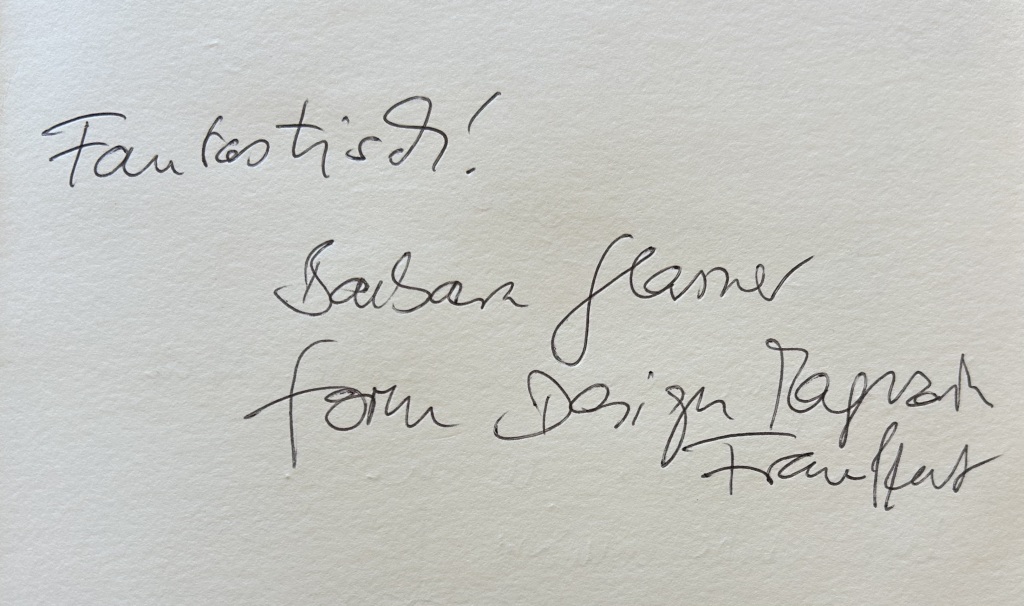 Fantastisch!
Barbara Glasner
form Design Magazin
Frankfurt